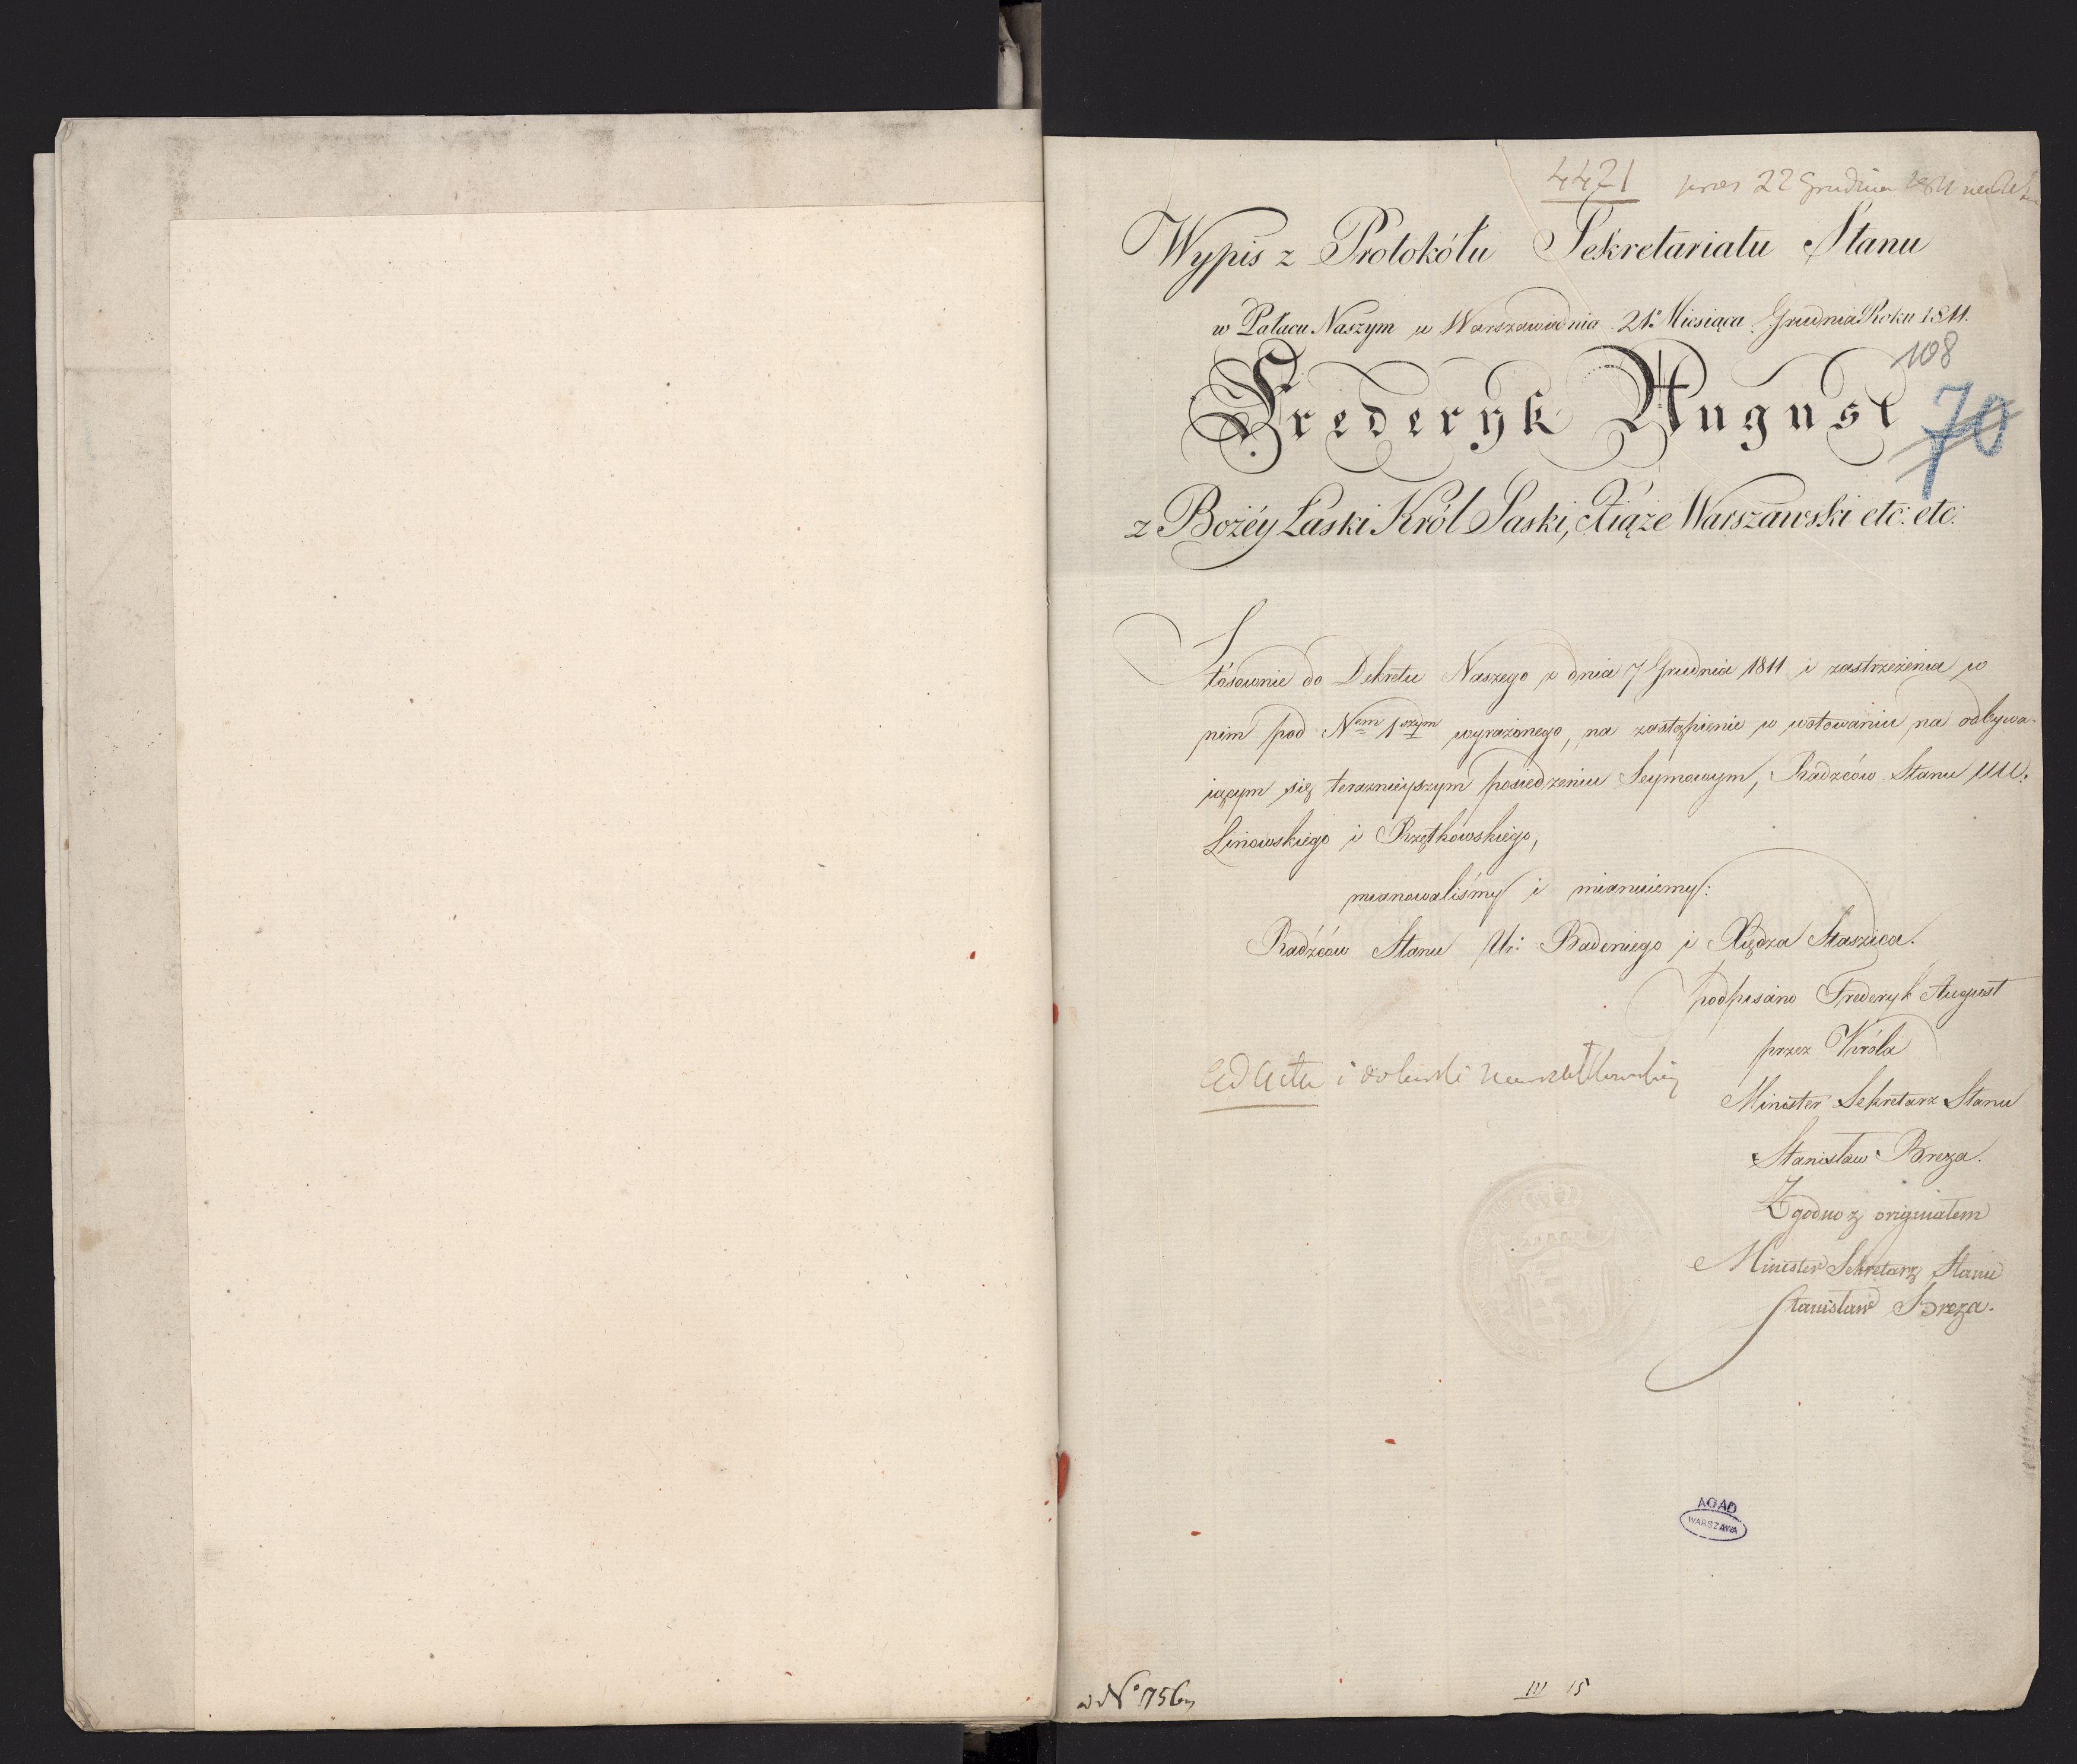 4471
22 Grudnia
Wypis z Protokółu Sekretariatu Stanu
w Pałacu Naszym w Warszawie dnia 21º Miesiąca Grudnia Roku 1811.
108
Frederyk August
70
z Bożéy Łaski Król Saski, Xiąże Warszawski etc: etc:
Stósownie do Dekretu Naszego z dnia 7 Grudnia 1811 i zastrzeżenia w
nim pod Nem 1szym wyrażonego, na zastąpienie w wotowaniu na odbywa-
iącym się teraznieyszym posiedzeniu Seymowym, Radzców Stanu UUr.
Linowskiego i Rzętkowskiego,
mianowaliśmy i mianuiemy:
Radźców Stanu Ur: Badeniego i Xiędza Staszica.
podpisano Frederyk August
przez Króla
ad acta i
Minister Sekretarz Stanu
Stanisław Breza.
Zgodno z originałem
Minister Sekretarz Stanu
Stanisław Breza.
AGAD
WARSZAWA
ad Nº 756
III 15